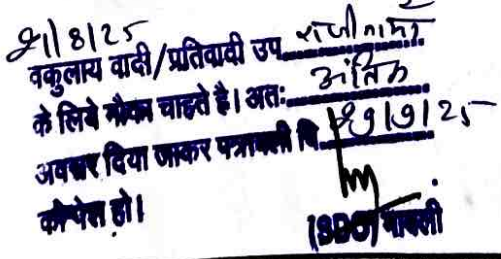 21/8/25
वकुलाय वादी/प्रतिवादी उप. राजीनामे
के लिये मौका चाहते है। अतः अंतिम
अवसर दिया जाकर पत्रावली दि. 29/9/25
को पेश हो।
(SDO) मावली